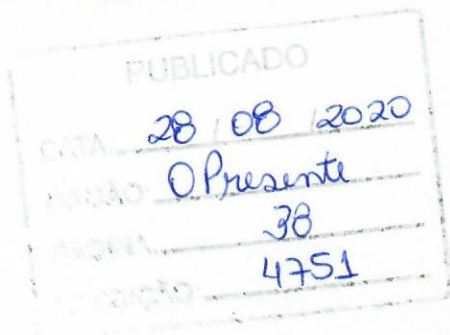 PUBLICADO
DATA 28 / 08 / 2020
ÓRGÃO: O Presente
PÁGINA 38
4751